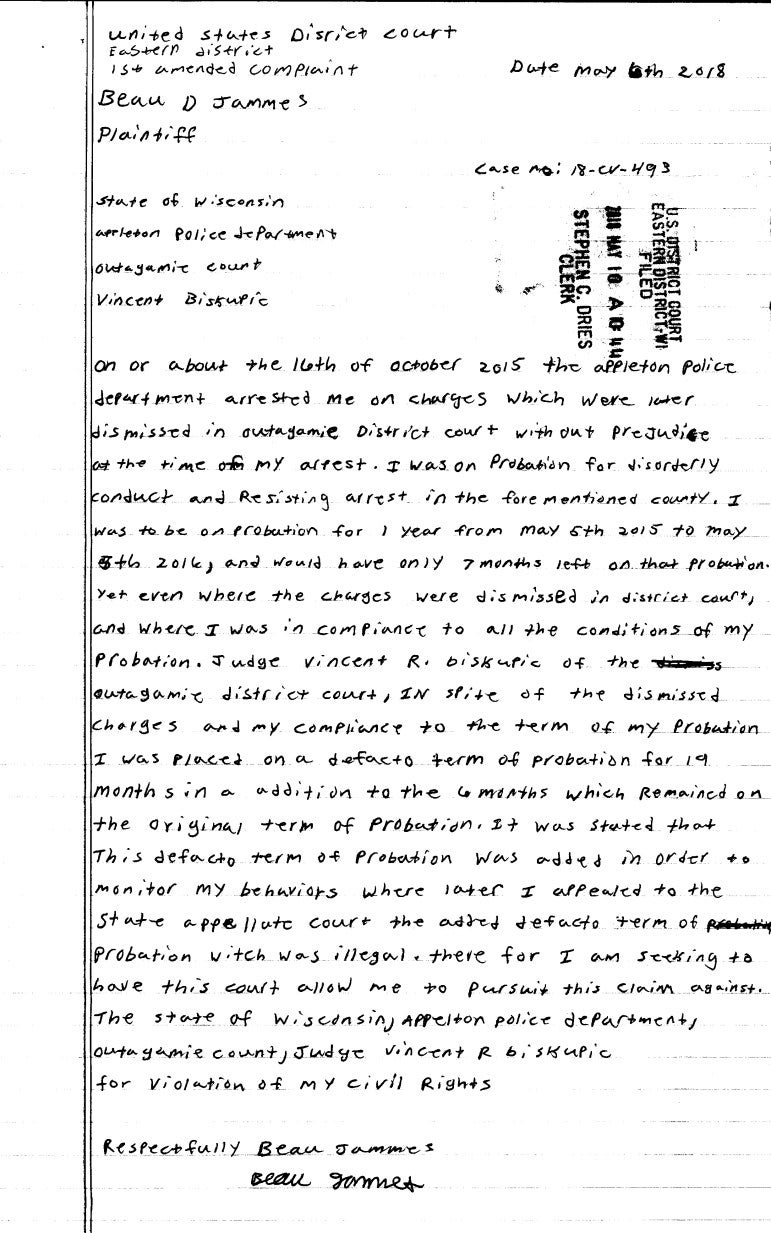 United states District court
Eastern district
1st amended complaint
Date may 6th 2018
Beau D Jammes
Plaintiff
case no: 18-cv-493
state of wisconsin
appleton Police department
outagamie court
Vincent Biskupic
U.S. DISTRICT COURT
EASTERN DISTRICT-WI
FILED
2018 MAY 10 A 10:44
STEPHEN C. DRIES
CLERK
on or about the 16th of october 2015 the appleton Police
department arrested me on charges which were later
dismissed in outagamie District court with out Prejudice
at the time of my arrest. I was on Probation for disorderly
conduct and Resisting arrest in the fore mentioned county. I
was to be on probation for 1 year from may 5th 2015 to may
5th 2016, and would have only 7 months left on that Probation.
Yet even where the charges were dismissed in district court,
and where I was in compiance to all the conditions of my
Probation. Judge vincent R. biskupic of the
outagamie district court, IN spite of the dismissed
charges and my compliance to the term of my Probation
I was placed on a defacto term of probation for 19
months in a addition to the 6 months which Remained on
the original term of Probation. It was stated that
This defacto term of Probation was added in order to
monitor my behaviors where later I appealed to the
State appellate court the added defacto term of
Probation witch was illegal. there for I am seeking to
have this court allow me to Pursuit this claim against.
The state of wisconsin, Appelton police department,
outagamie count, Judge vincent R biskupic
for violation of my civil Rights
Respectfully Beau Jammes
Beau Jammes